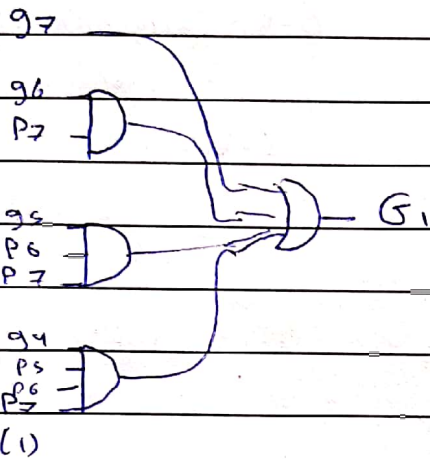 g7
g6
P7
G1
g5
P6
P7
g4
P5
P6
P7
(1)